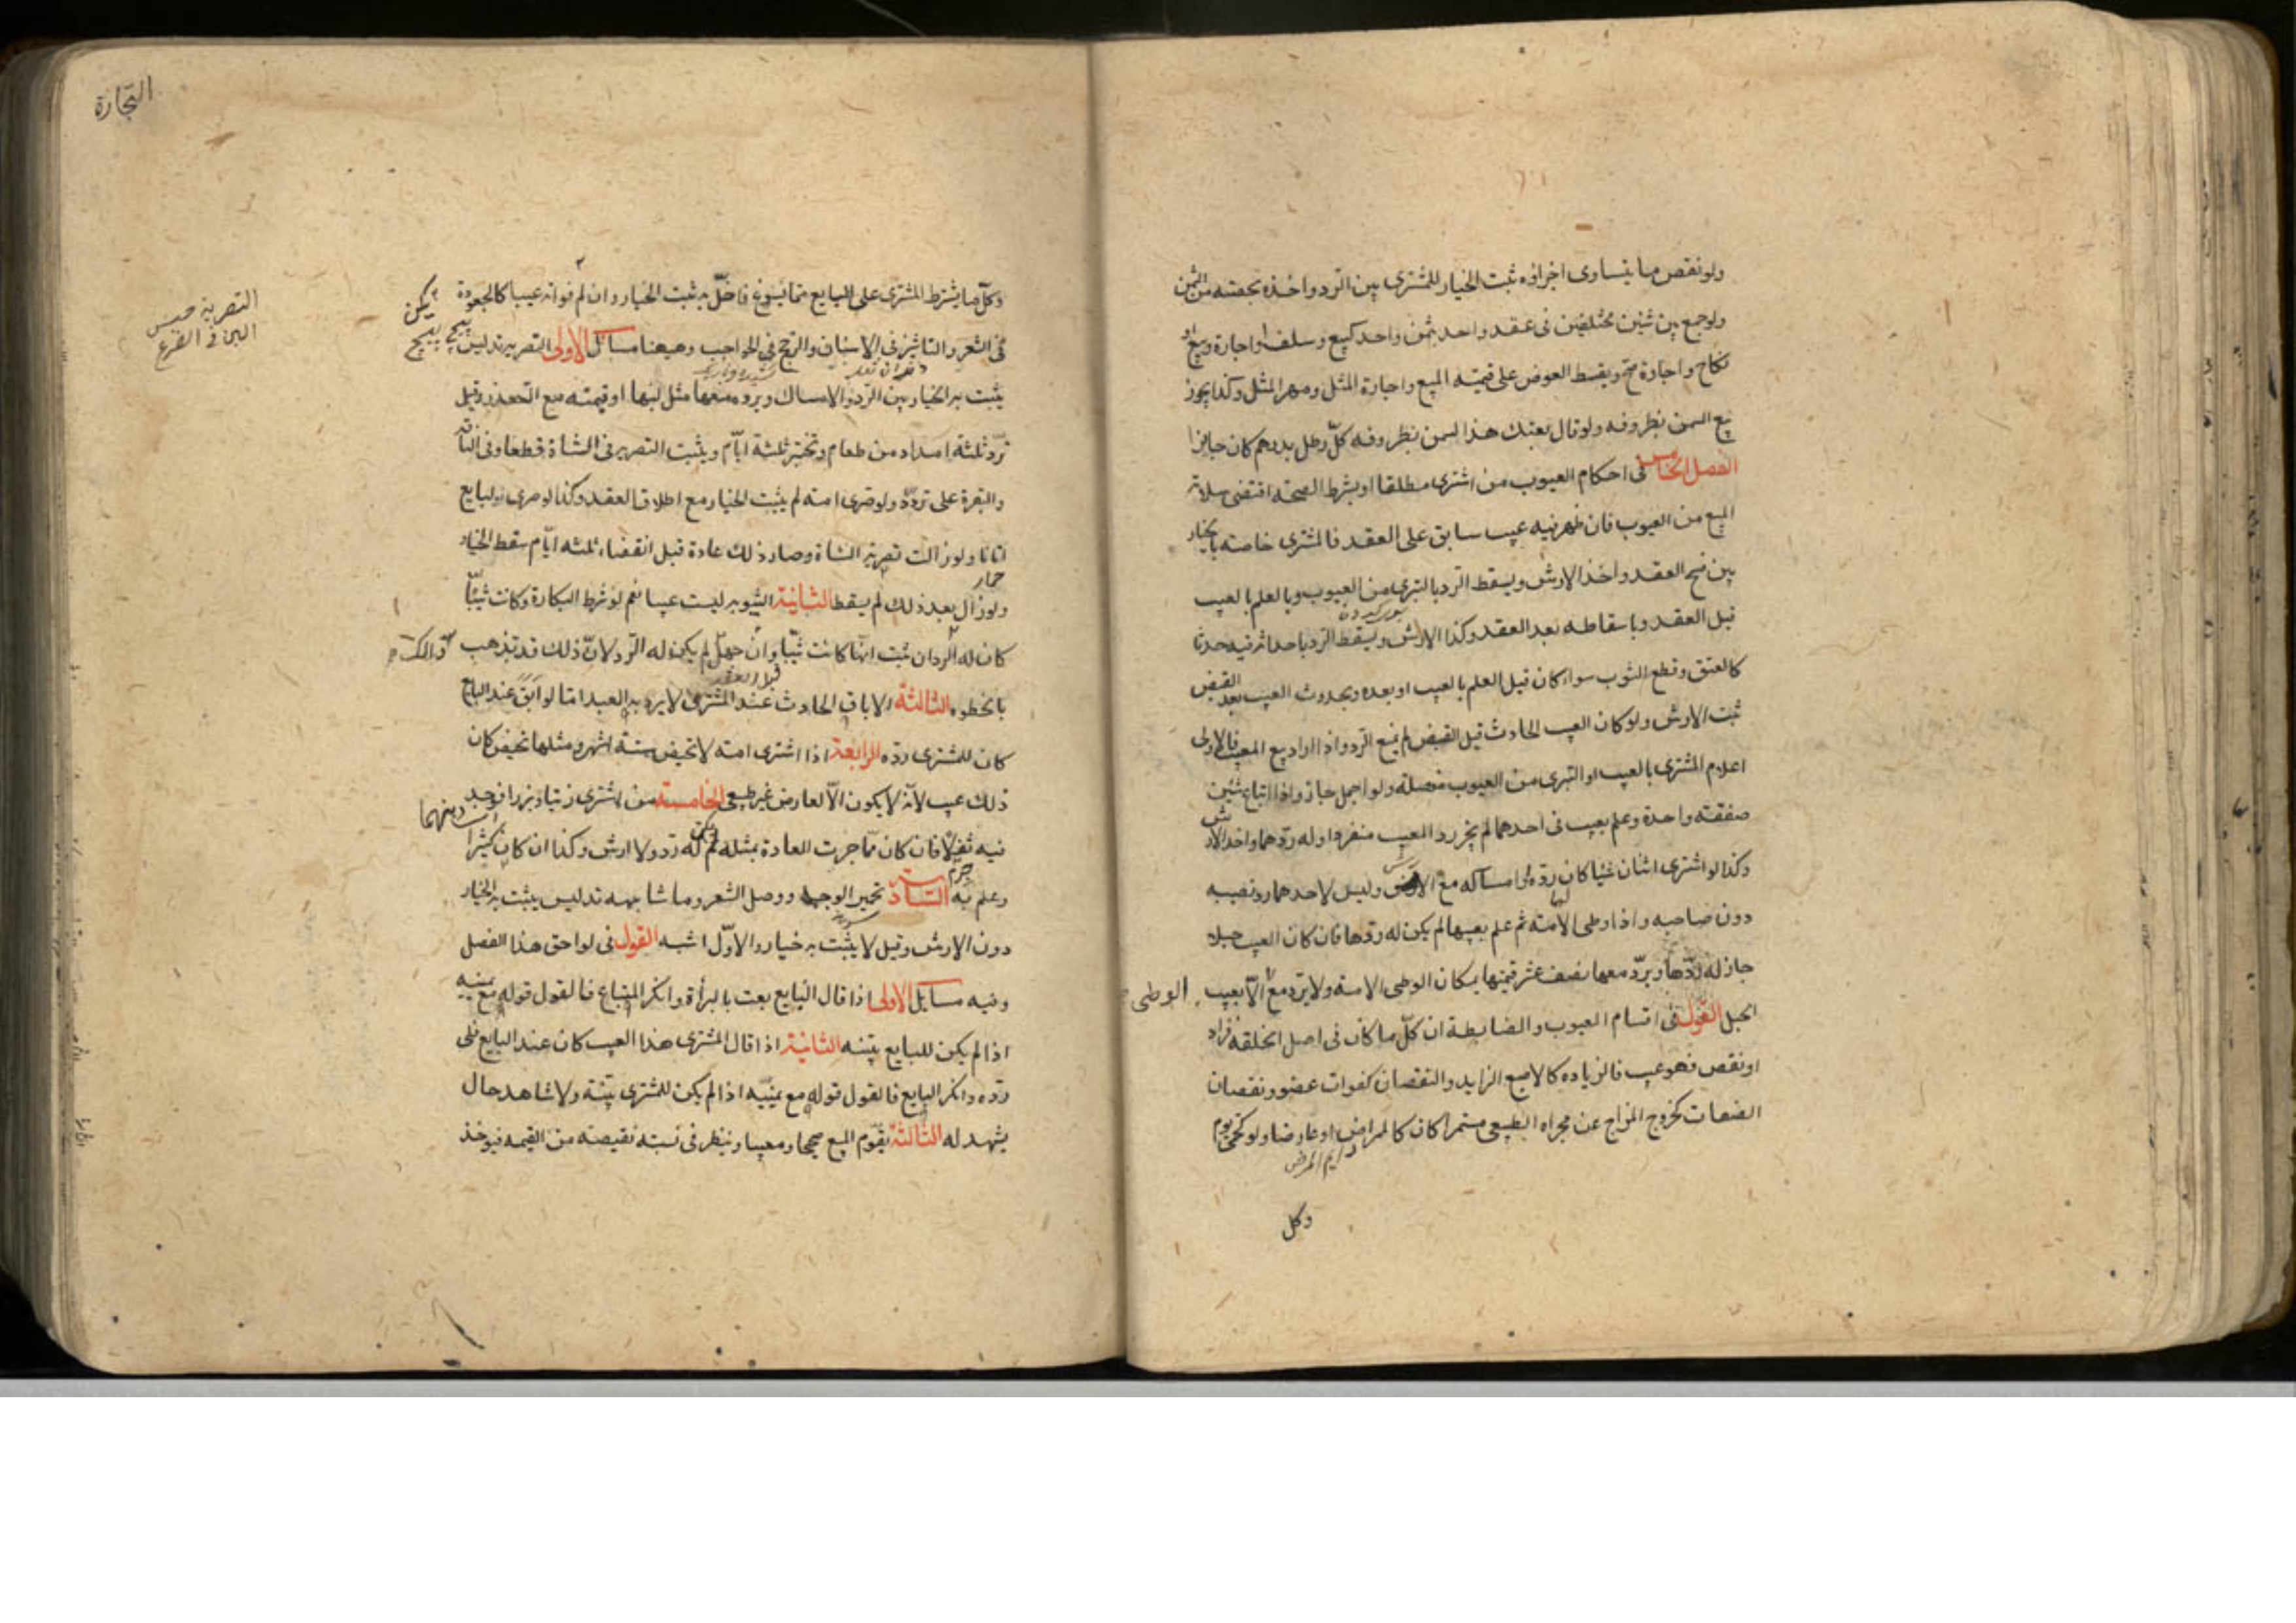 ولو نقص ما يتساوى اجزاؤه ثبت الخيار للمشترى بين الرد واخذه بحصته من الثمن
ولو جمع بين شيئين مختلفين فى عقد واحد بثمن واحد كبيع وسلف او اجارة وبيع او
نكاح واجارة صح ويقسط العوض على قيمته المبيع واجارة المثل ومهر المثل وكذا يجوز
بيع السمن بظروفه ولو قال بعتك هذا السمن بظروفه كل رطل بدرهم كان جايزا
الفصل الخامس فى احكام العيوب من اشترى مطلقا او بشرط الصحته اقتضى سلامته
المبيع من العيوب فان ظهر فيه عيب سابق على العقد فالمشترى خاصته بالخيار
بين فسخ العقد واخذ الارش ويسقط الرد بالتبرى من العيوب وبالعلم بالعيب
قبل العقد وباسقاطه بعد العقد وكذا الارش ويسقط الرد باحداثه فيه حدثا
كالعتق وقطع الثوب سواء كان قبل العلم بالعيب او بعده وبحدوث العيب بعد القبض
ثبت الارش ولو كان العيب الحادث قبل القبض لم يمنع الرد واذا اراد بيع المعيب فالاولى
اعلام المشترى بالعيب او التبرى من العيوب مفصلة ولو اجمل جاز واذا ابتاع شيئين
صفقته واحدة وعلم بعيب فى احدهما لم يجز رد المعيب منفردا وله ردهما واخذ الارش
وكذا لو اشترى اثنان شيئا كان لهما رده او امساكه مع الارش وليس لاحدهما رد نصيبه
دون صاحبه واذا وطى الامته ثم علم بعيبها لم يكن له ردها فان كان العيب حبلا
جاز له ردها ويرد معها نصف عشر قيمتها لمكان الوطى الامته ولا يرد مع الوطى الا بعيب
الحبل القول فى اقسام العيوب والضابطة ان كل ما كان فى اصل الخلقه فزاد
او نقص فهو عيب فالزياده كالاصبع الزايد والنقصان كفوات عضو ونقصان
الصفات كخروج المزاج عن مجراه الطبيعى مستمرا كان كالممراض او عارضا ولو كحمى يوم
دايم المرض
وكل
التجارة
التصرية حبس
اللبن فى الضرع
وكل ما يشترط المشترى على البايع مما يسوغ فاخل به ثبت الخيار وان لم يكن فواته عيبا كالجعودة
فى الشعر والتاشير فى الاسنان والزجج فى الحواجب وهيهنا مسائل الاولى التصريه تدليس
يثبت به الخيار بين الرد والامساك ويرد معها مثل لبنها او قيمته مع التعذر وقيل
ترد ثلثة امداد من طعام وتختبر ثلثة ايام ويثبت التصريه فى الشاة قطعا وفى الناقه
والبقرة على تردد ولو صرى امته لم يثبت الخيار مع اطلاق العقد وكذا لو صرى البايع
اتانا ولو زالت تصرية الشاة وصار ذلك عادة قبل انقضاء ثلثه ايام سقط الخيار
حمار
ولو زال بعد ذلك لم يسقط الثانية الثيوبه ليست عيبا نعم لو شرط البكارة وكانت ثيبا
كان له الرد ان ثبت انها كانت ثيبا وان جهل لم يكن له الرد لان ذلك قد تذهب
بالخطوه الثالثة الاباق الحادث عند المشترى لا يرد به العبد اما لو ابق عند البايع
كان للمشترى رده الرابعة اذا اشترى امته لا تحيض ستة اشهر ومثلها تحيض كان
ذلك عيب لانه لا يكون الا لعارض غير طبيعى الخامسته من اشترى زيتا او بزرا فوجد
فيه ثفلا فان كان مما جرت العادة بمثله لم يكن له رد ولا ارش وكذا ان كان كثيرا
وعلم به السادسته تحمير الوجه ووصل الشعر وما شابهه تدليس يثبت به الخيار
دون الارش وقيل لا يثبت به خيار والاول اشبه القول فى لواحق هذا الفصل
وفيه مسايل الاولى اذا قال البايع بعت بالبرأة وانكر المبتاع فالقول قوله مع يمينه
اذا لم يكن للبايع بينه الثانية اذا قال المشترى هذا العيب كان عند البايع فلى
رده وانكر البايع فالقول قوله مع يمينه اذا لم يكن للمشترى بينة ولا شاهد حال
يشهد له الثالثة يقوم المبيع صحيحا ومعيبا وينظر فى نسبته نقيصته من القيمه فيوخذ